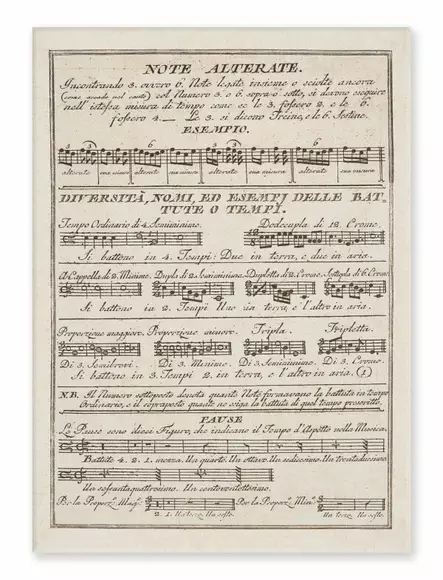 NOTE ALTERATE.
Incontrando 3. ovvero 6. Note legate insieme o sciolte ancora
(come accade nel canto) col Numero 3. o 6. sopra o sotto, si devono eseguire
nell' istessa misura di tempo come se le 3. fossero 2. e le 6.
fossero 4. __ Le 3. si dicono Treine, e le 6. Sestine.
ESEMPIO.
3 3 6 3 3 6
alterate una misura alterate una misura alterate una misura alterate una misura
DIVERSITÀ, NOMI, ED ESEMPJ DELLE BAT-
TUTE O TEMPI.
Tempo Ordinario di 4. Semiminime. Dodecupla di 12. Crome.
Si battono in 4. Tempi: Due in terra, e due in aria.
A Cappella di 2. Minime. Dupla di 2. Semiminime. Dupletta di 2. Crome. Sestupla di 6. Crome
Si battono in 2. Tempi Uno in terra, e l'altro in aria.
Proporzione maggiore. Proporzione minore. Tripla. Tripletta.
Di 3. Semibrevi. Di 3. Minime. Di 3. Semiminime. Di 3. Crome.
Si battono in 3. Tempi 2. in terra, e l'altro in aria. (1)
N.B. Il Numero sottoposto denota quante Note formavano la battuta in tempo
Ordinario, e il sopraposto quante ne esiga la battuta di quel tempo prescritto.
PAUSE
Le Pause sono dieci Figure, che indicano il Tempo d'Aspetto nella Musica.
Battute 4. 2. 1. mezza. Un quarto. Un ottavo. Un sedicesimo. Un trentaduesimo
Un sessantaquattresimo. Un centoventottesimo.
Per la Proporz.e Magg.e Per la Proporz.e Min.e
2. 1. Un terzo. Un sesto. Un terzo. Un sesto.